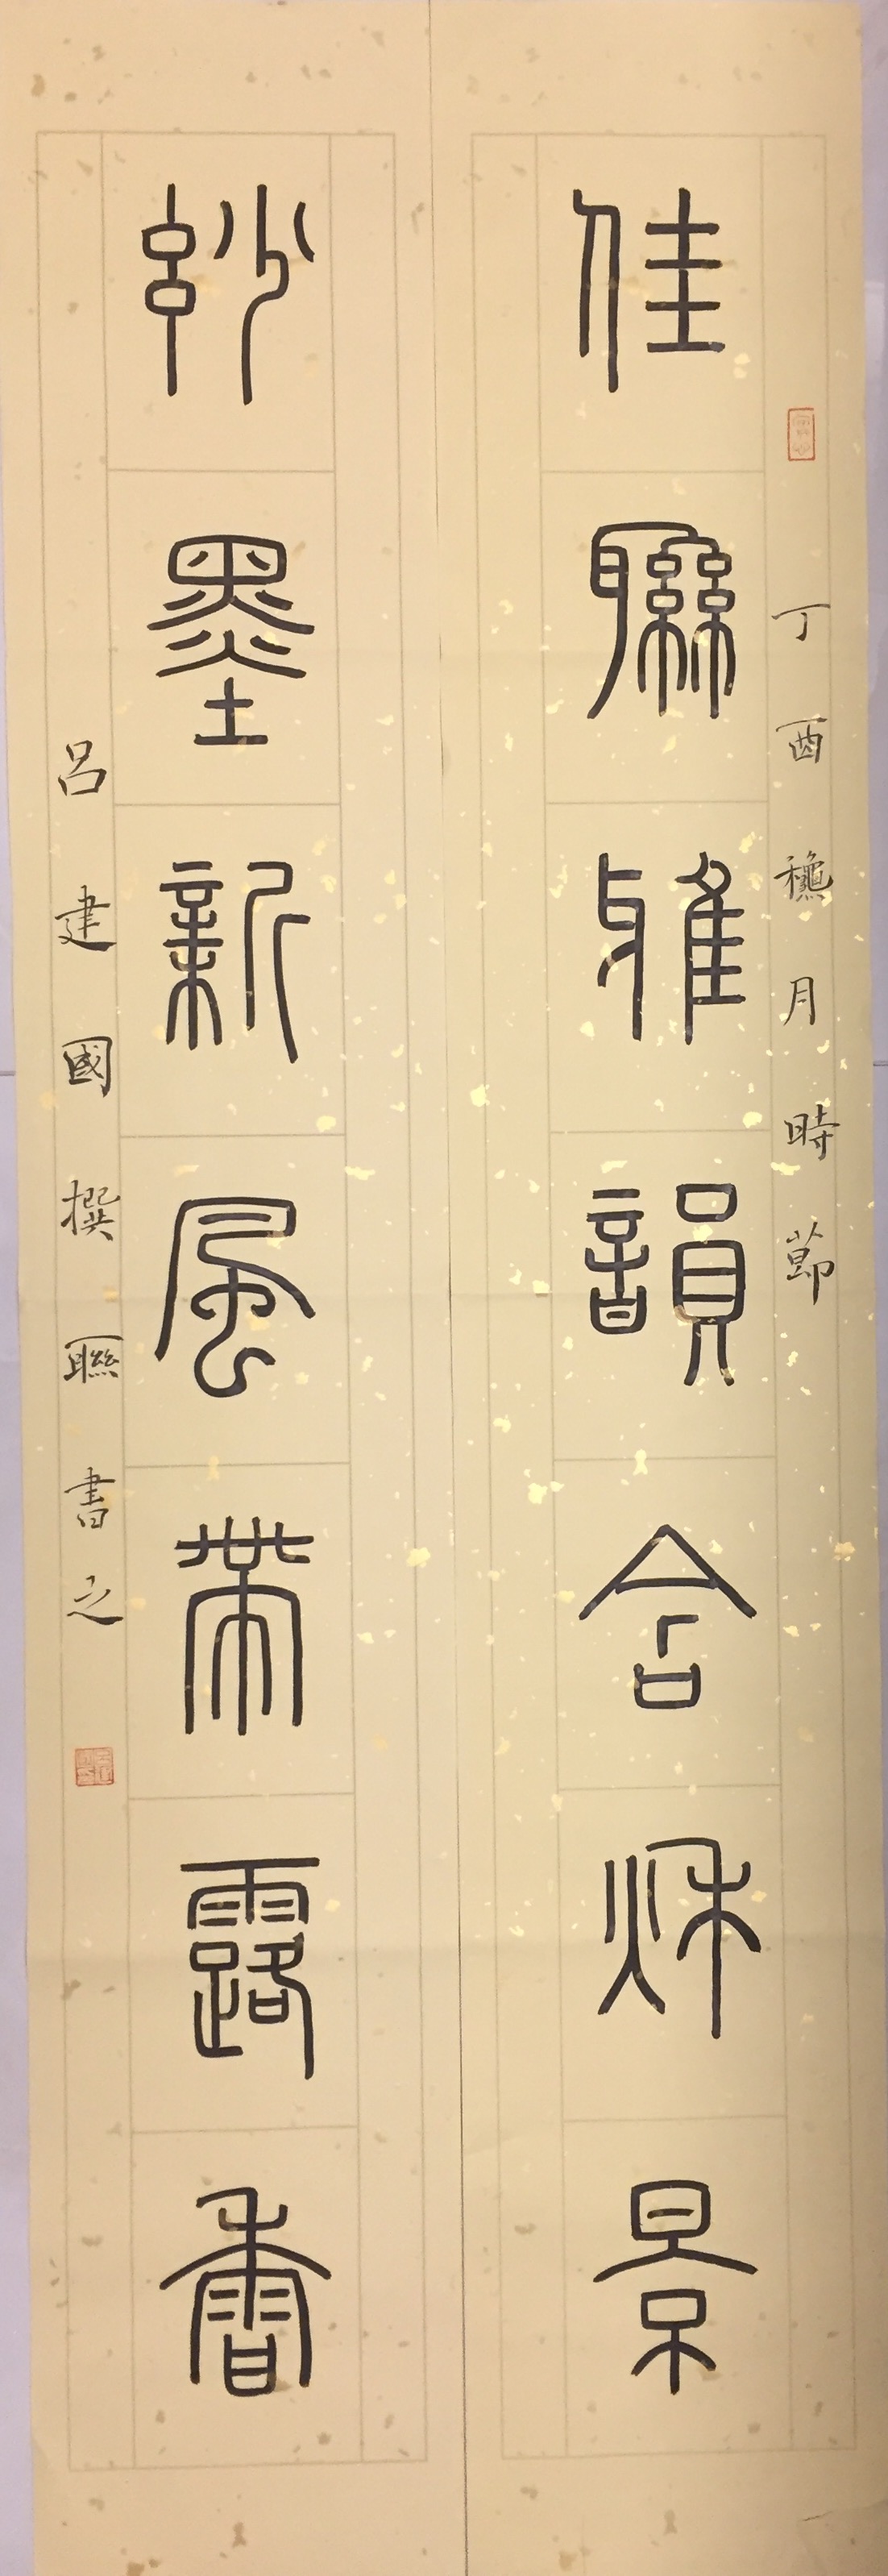 丁酉龝月時節
佳聯雅韻含秌景
玅墨新風帶露香
呂建國撰聯書之